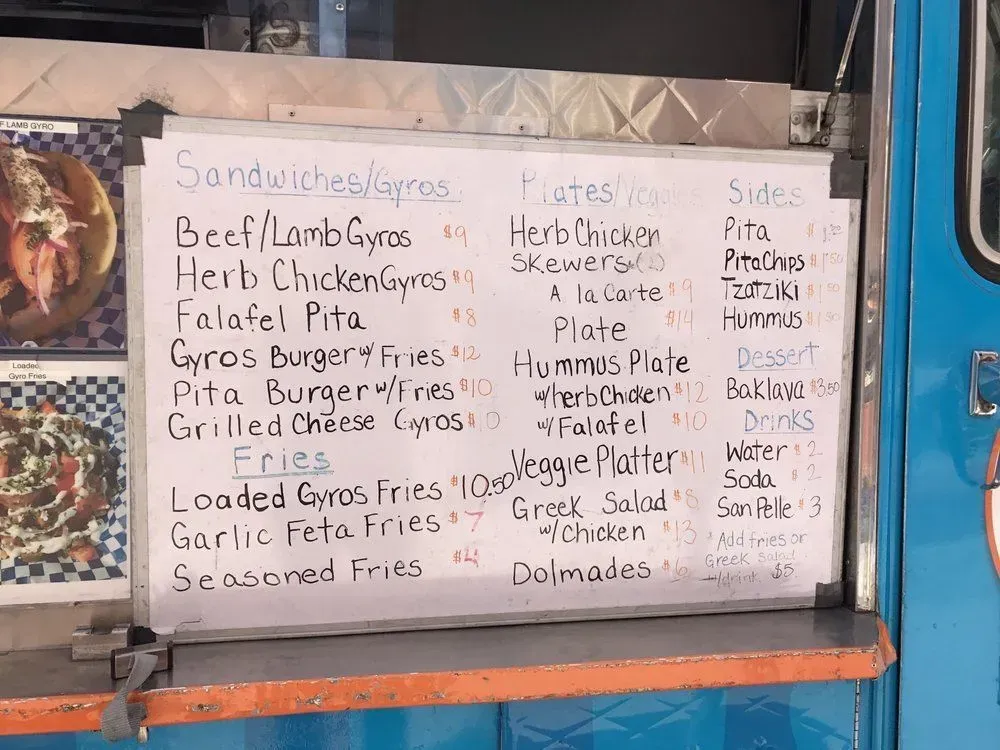 F LAMB GYRO
Loaded
Gyro Fries
Sandwiches/Gyros
Beef/Lamb Gyros $9
Herb Chicken Gyros $9
Falafel Pita $8
Gyros Burger w/ Fries $12
Pita Burger w/Fries $10
Grilled Cheese Gyros $10
Fries
Loaded Gyros Fries $10.50
Garlic Feta Fries $7
Seasoned Fries $4
Plates/Veggies
Herb Chicken
Skewers (2)
A la Carte $9
Plate $14
Hummus Plate
w/herb Chicken $12
w/Falafel $10
Veggie Platter $11
Greek Salad $8
w/Chicken $13
Dolmades $6
Sides
Pita $
Pita Chips $1.50
Tzatziki $1.50
Hummus $1.50
Dessert
Baklava $3.50
Drinks
Water $2
Soda $2
San Pelle $3
*Add fries or
Greek Salad
w/drink $5